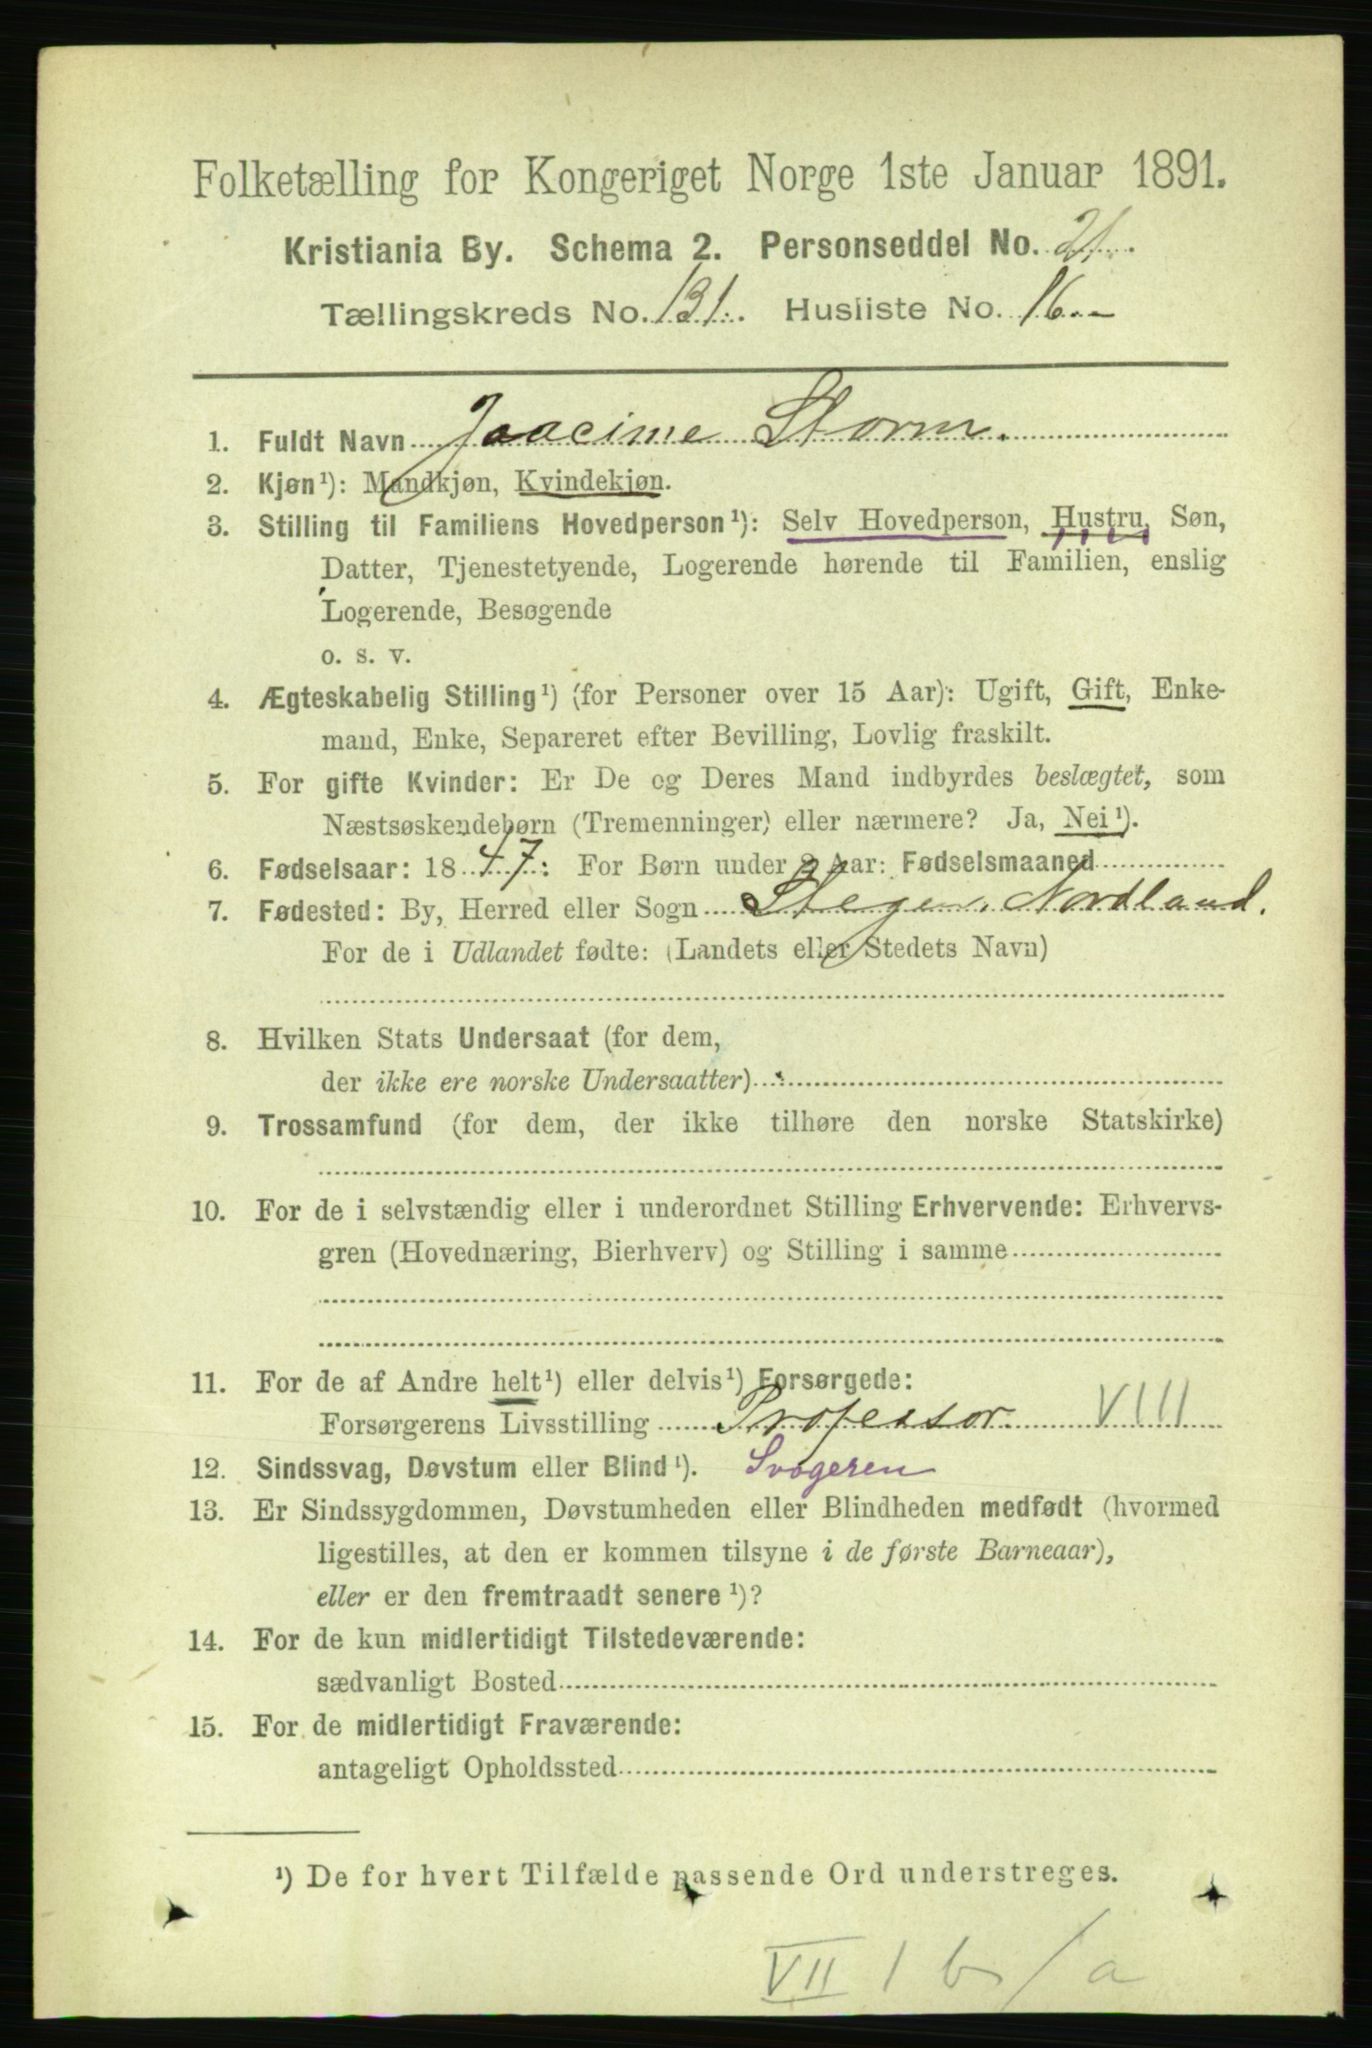 Folketælling for Kongeriget Norge 1ste Januar 1891.
Kristiania By. Schema 2. Personseddel No. 21.
Tællingskreds No. 131. Husliste No. 16.-
1. Fuldt Navn Joacime Storm.
2. Kjøn¹): Mandkjøn, Kvindekjøn.
3. Stilling til Familiens Hovedperson¹): Selv Hovedperson, Hustru, Søn,
Datter, Tjenestetyende, Logerende hørende til Familien, enslig
Logerende, Besøgende
o. s. v.
4. Ægteskabelig Stilling¹) (for Personer over 15 Aar): Ugift, Gift, Enke-
mand, Enke, Separeret efter Bevilling, Lovlig fraskilt.
5. For gifte Kvinder: Er De og Deres Mand indbyrdes beslægtet, som
Næstsøskendebørn (Tremenninger) eller nærmere? Ja, Nei¹).
6. Fødselsaar: 1847: For Børn under 2 Aar: Fødselsmaaned
7. Fødested: By, Herred eller Sogn Stegen, Nordland.
For de i Udlandet fødte: (Landets eller Stedets Navn)
8. Hvilken Stats Undersaat (for dem,
der ikke ere norske Undersaatter)
9. Trossamfund (for dem, der ikke tilhøre den norske Statskirke)
10. For de i selvstændig eller i underordnet Stilling Erhvervende: Erhvervs-
gren (Hovednæring, Bierhverv) og Stilling i samme
11. For de af Andre helt¹) eller delvis¹) Forsørgede:
Forsørgerens Livsstilling Professor. VIII
12. Sindssvag, Døvstum eller Blind¹). Svogeren
13. Er Sindssygdommen, Døvstumheden eller Blindheden medfødt (hvormed
ligestilles, at den er kommen tilsyne i de første Barneaar),
eller er den fremtraadt senere¹)?
14. For de kun midlertidigt Tilstedeværende:
sædvanligt Bosted
15. For de midlertidigt Fraværende:
antageligt Opholdssted
¹) De for hvert Tilfælde passende Ord understreges.
VII 1 b / a